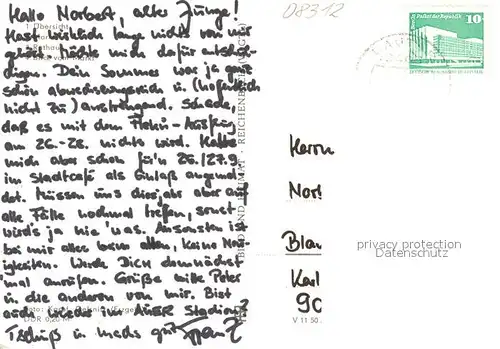 D8312
Hallo Norbert, alter Junge!
Hast wirklich lange nichts von mir
gehört, möchte mich dafür entschul-
digen. Dein Sommer war ja ganz
schön abwechslungsreich u. (hoffentlich
nicht zu) anstrengend. Schade,
daß es mit dem -Ausflug
am 26.-28. nichts wird. Hatte
mich aber schon für'n 26./27.9.
im Stadtcafé als Einlaß angemel-
det. Müssen uns dies Jahr aber auf
alle Fälle nochmal treffen, sonst
wird's ja nie was. Ansonsten ist
bei mir alles beim alten, keine Neu-
igkeiten. Werde Dich demnächst
mal anrufen. Grüße bitte Peter
u. die anderen von mir. Bist
auch wieder im AUER Stadion?
Tschüß u. machs gut
1 Übersicht
Rathaus
BILD UND HEIMAT · REICHENBACH (V
DDR 0,20 M
V 11 50
Palast der Republik
10
DDR
Herrn
Nor
Blan
Karl
90
privacy protection
Datenschutz